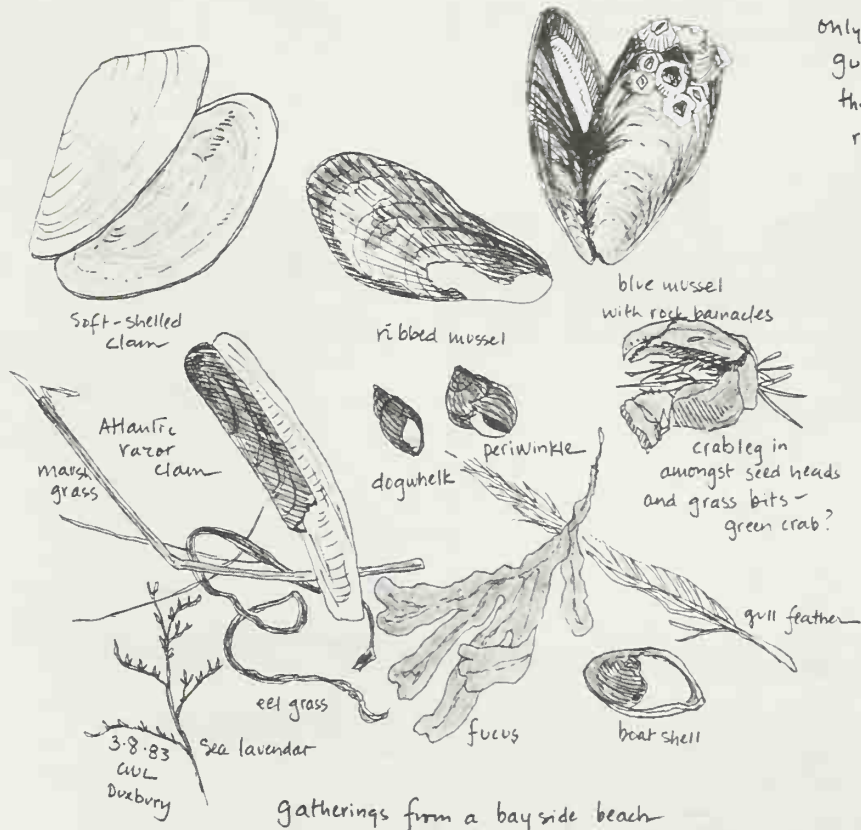 only
gu
the
r
Soft-shelled
clam
ribbed mussel
blue mussel
with rock barnacles
Atlantic
razor
clam
marsh
grass
dogwhelk
periwinkle
crableg in
amongst seed heads
and grass bits –
green crab?
gull feather
eel grass
fucus
boat shell
Sea lavendar
3·8·83
CWL
Duxbury
gatherings from a bayside beach